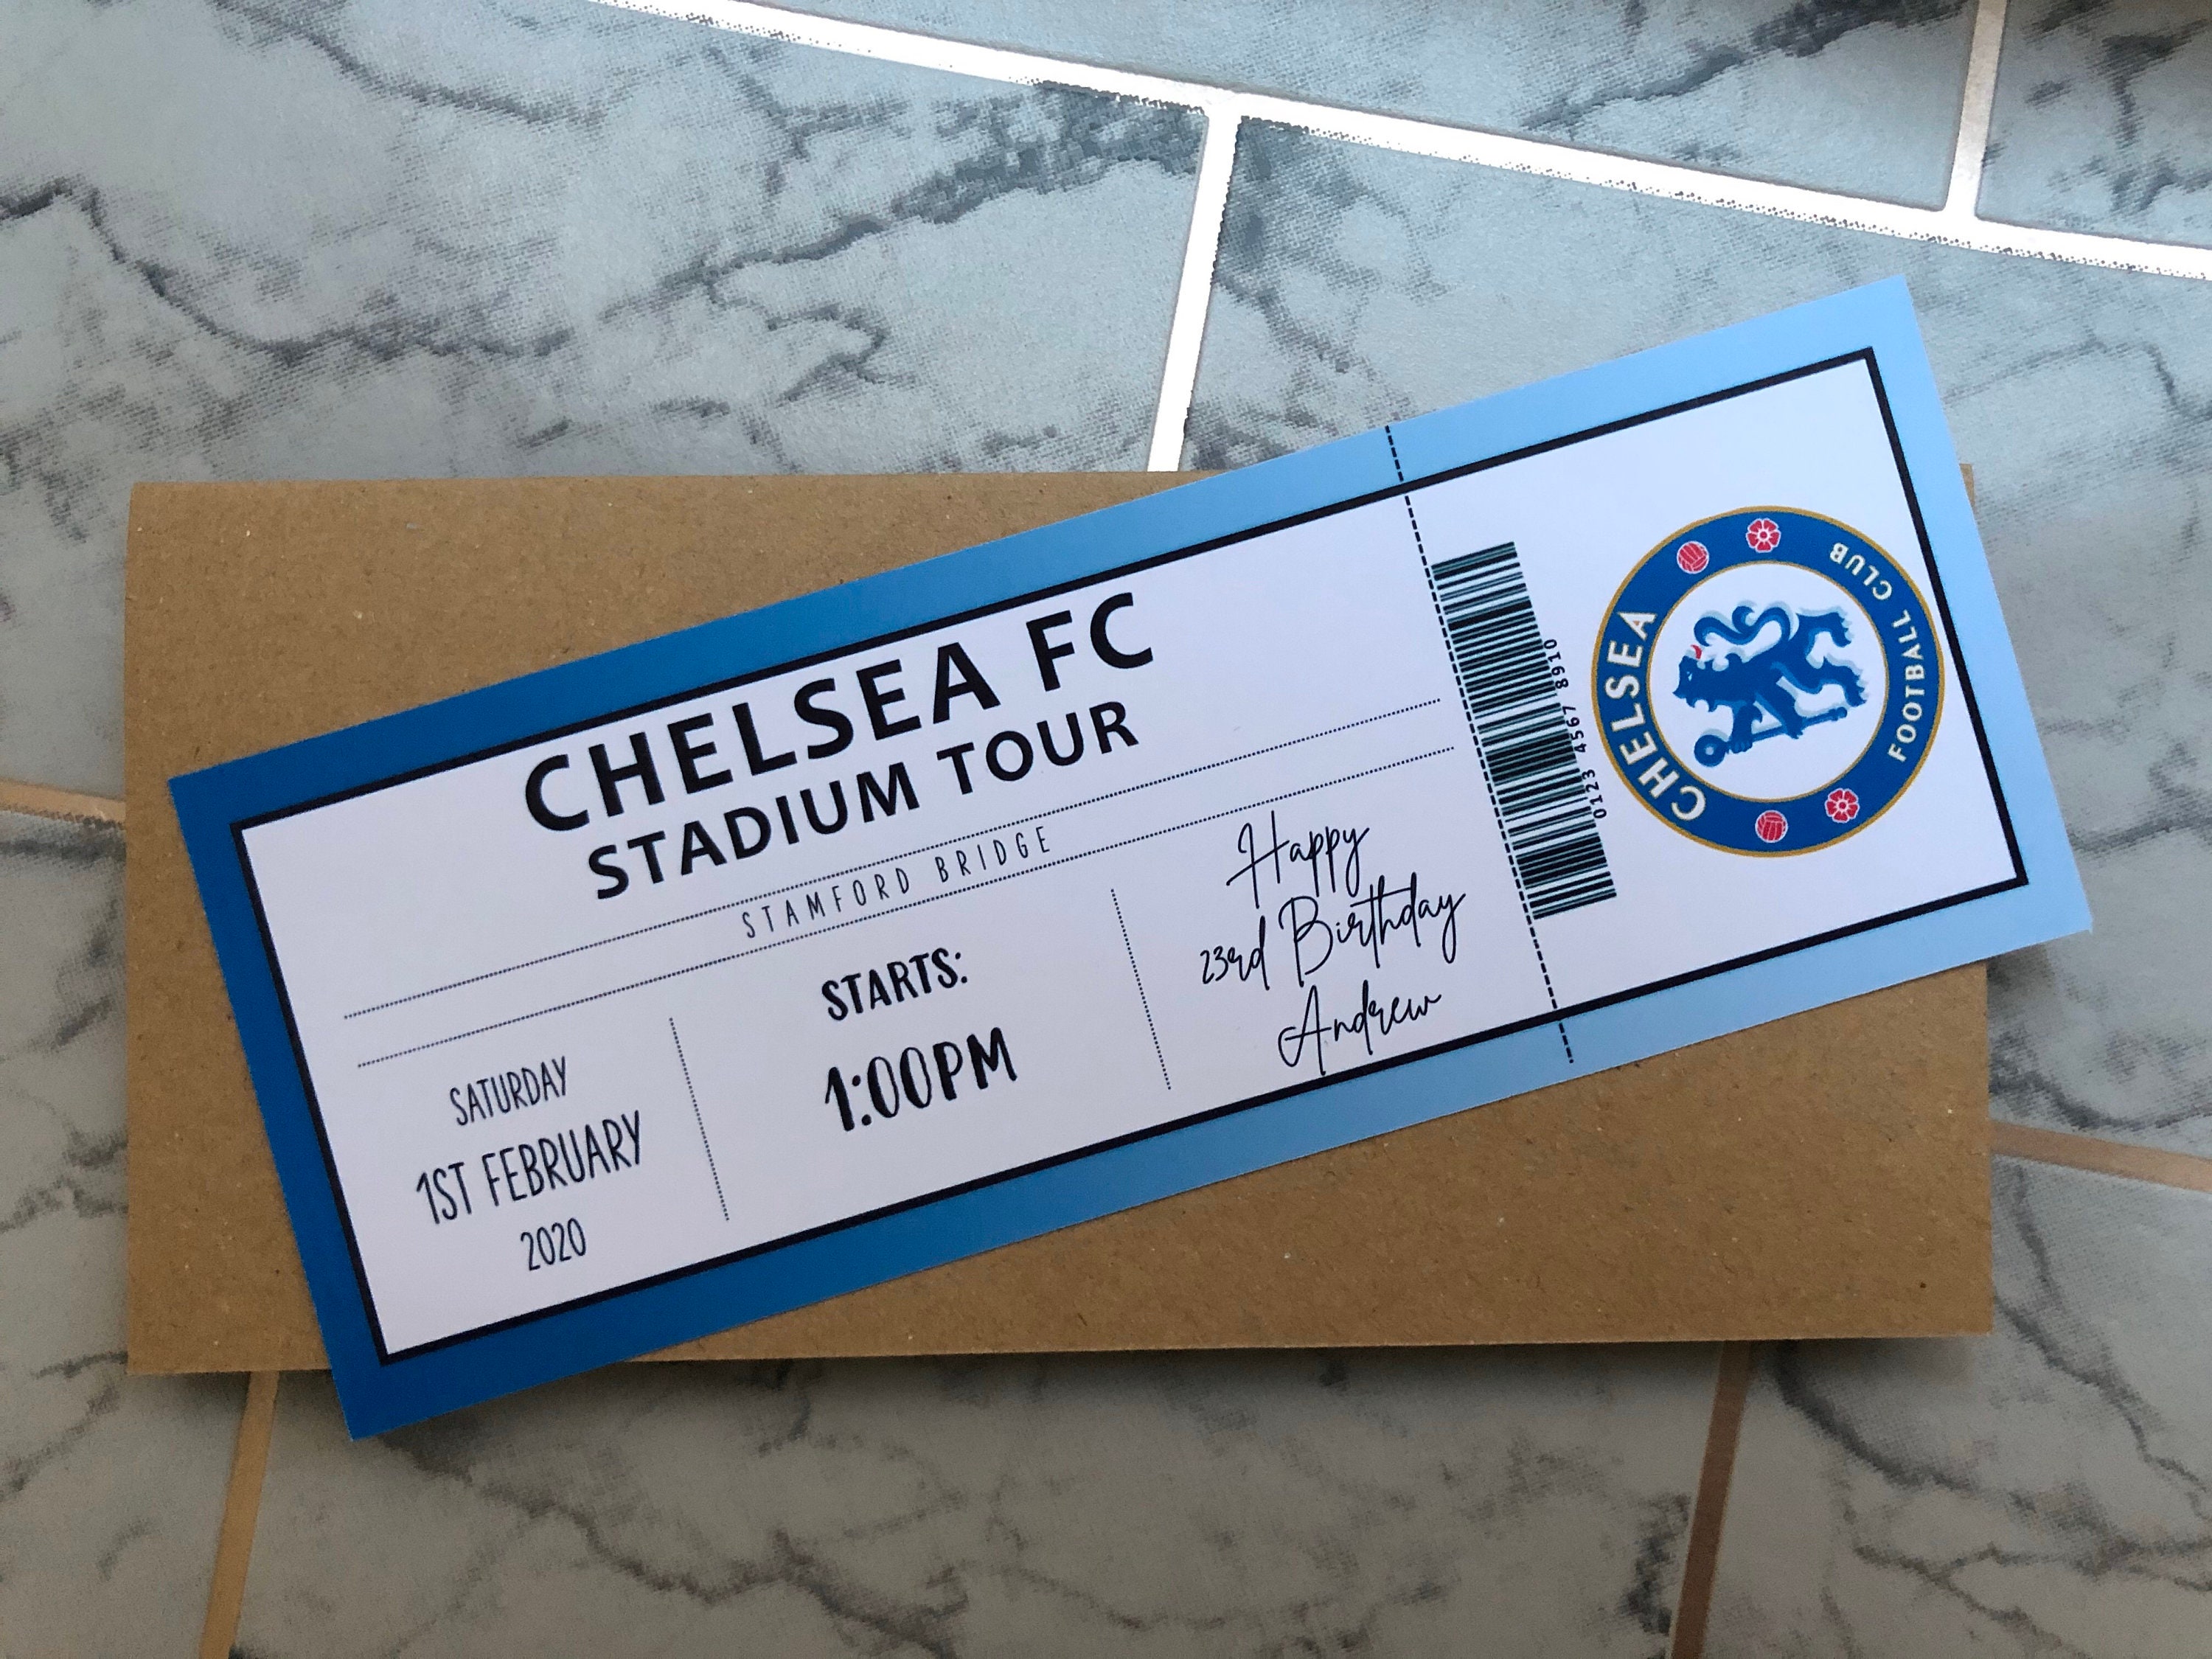 CHELSEA FC
STADIUM TOUR
STAMFORD BRIDGE
SATURDAY
1ST FEBRUARY
2020
STARTS:
1:00PM
Happy
23rd Birthday
Andrew
0123 4567 8910
CHELSEA
FOOTBALL CLUB